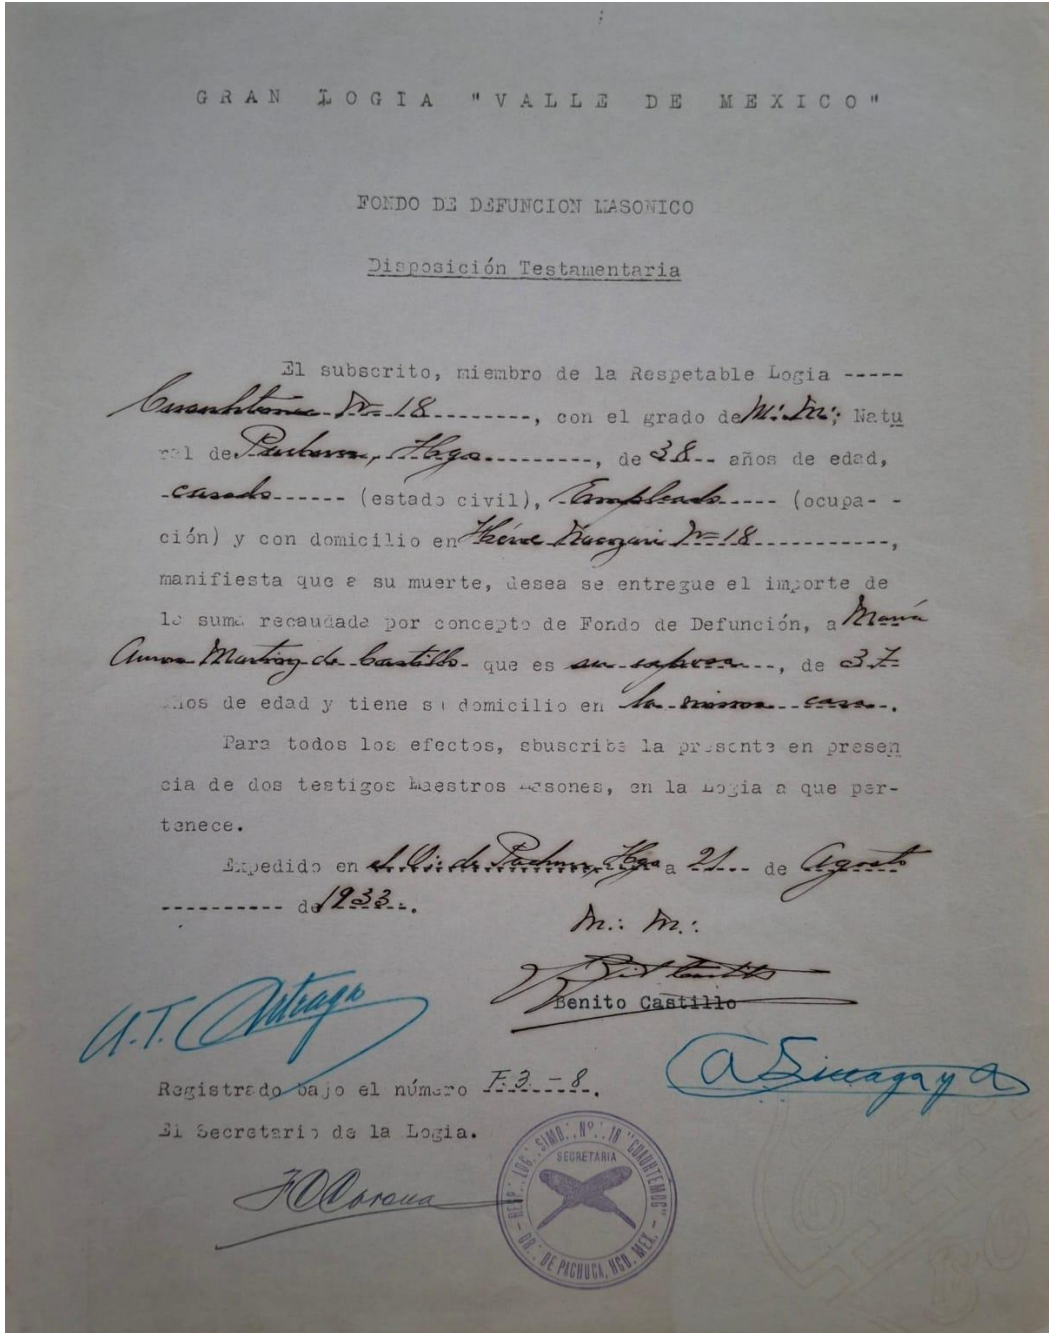 GRAN LOGIA "VALLE DE MEXICO"
FONDO DE DEFUNCION MASONICO
Disposición Testamentaria
El subscrito, miembro de la Respetable Logia -----
Cuauhtémoc Nº 18 --------, con el grado de M∴ M∴; Natu
ral de Pachuca, Hgo. ---------, de 38 -- años de edad,
- casado ------ (estado civil), - Empleado ----- (ocupa- -
ción) y con domicilio en Héroe Nacozari Nº 18 -----------,
manifiesta que a su muerte, desea se entregue el importe de
la suma recaudada por concepto de Fondo de Defunción, a María
Aurora de Castillo - que es su esposa ---, de 37 -
años de edad y tiene su domicilio en la misma casa -.
Para todos los efectos, sbuscribe la presente en presen
cia de dos testigos Maestros Masones, en la Logia a que per-
tenece.
Expedido en el Or∴ de Pachuca, Hgo a 21 --- de Agosto
---------- de 1933 -.
M∴ M∴
Benito Castillo
A. T. Arteaga
Registrado bajo el número F. 3. - 8.
El Secretario de la Logia.
RESP∴ LOG∴ SIMB∴ Nº∴ 18 "CUAUHTEMOC"
SECRETARIA
GR∴ DE PACHUCA, HGO. MEX.